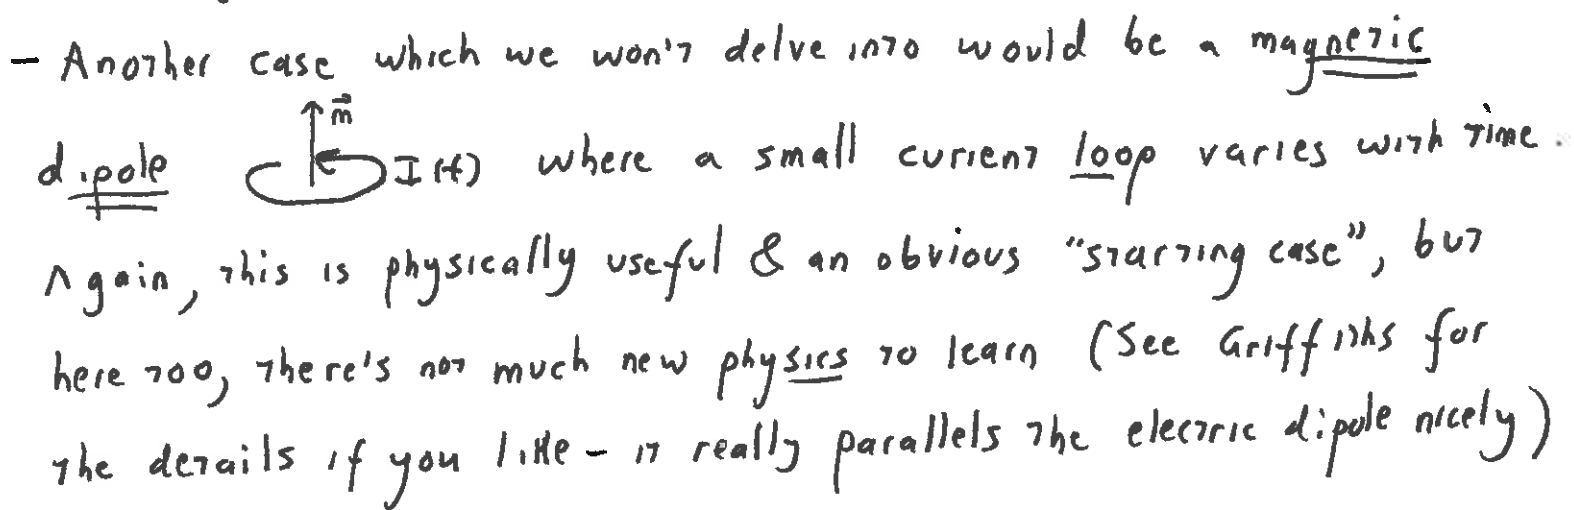 - Another case which we won't delve into would be a magnetic
dipole m⃗ I(t) where a small current loop varies with time.
Again, this is physically useful & an obvious "starting case", but
here too, there's not much new physics to learn (See Griffiths for
the details if you like - it really parallels the electric dipole nicely)